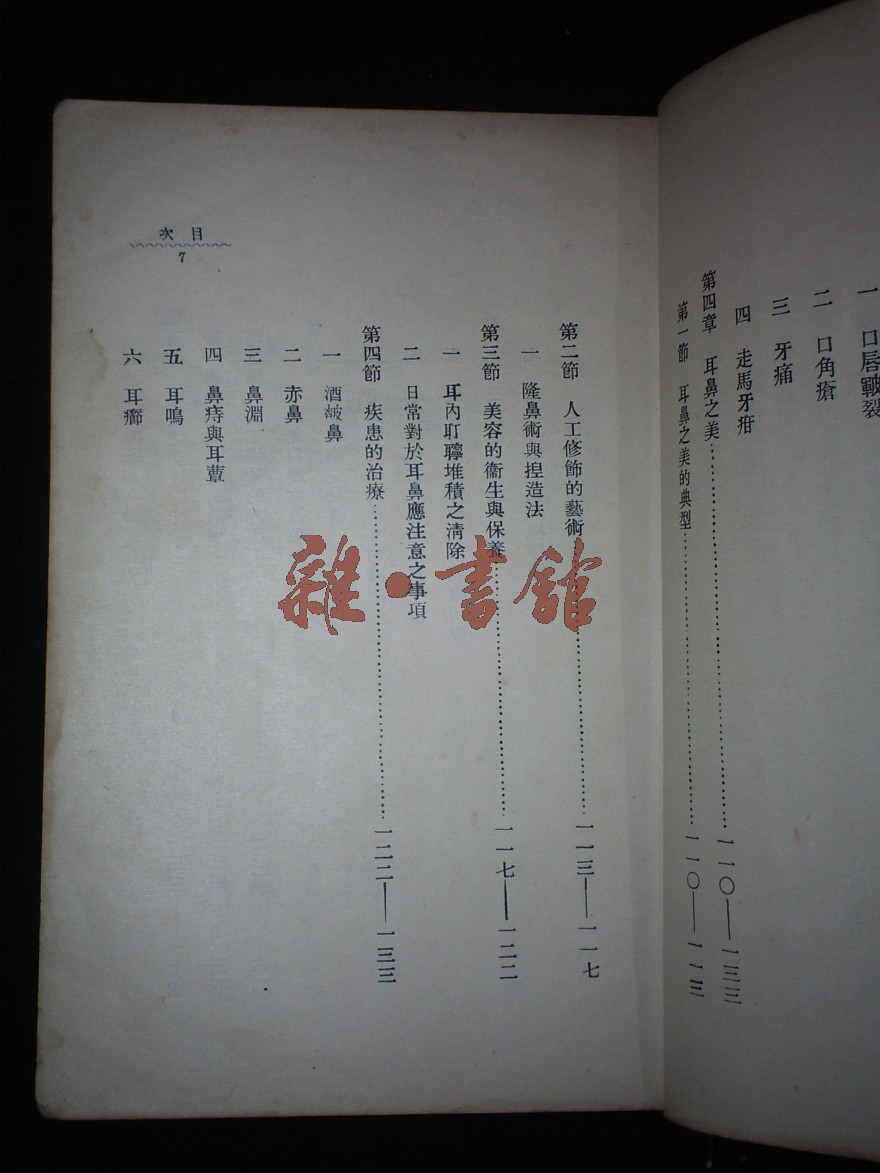 一 口唇皸裂
二 口角瘡
三 牙痛
四 走馬牙疳
第四章 耳鼻之美……一一〇——一三三
第一節 耳鼻之美的典型……一一〇——一一三
目次
7
第二節 人工修飾的藝術……一一三——一一七
一 隆鼻術與捏造法
第三節 美容的衞生與保養……一一七——一二二
一 耳內耵聹堆積之淸除
二 日常對於耳鼻應注意之事項
第四節 疾患的治療……一二二——一三三
一 酒皶鼻
二 赤鼻
三 鼻淵
四 鼻痔與耳蕈
五 耳鳴
六 耳癤
雜·書館